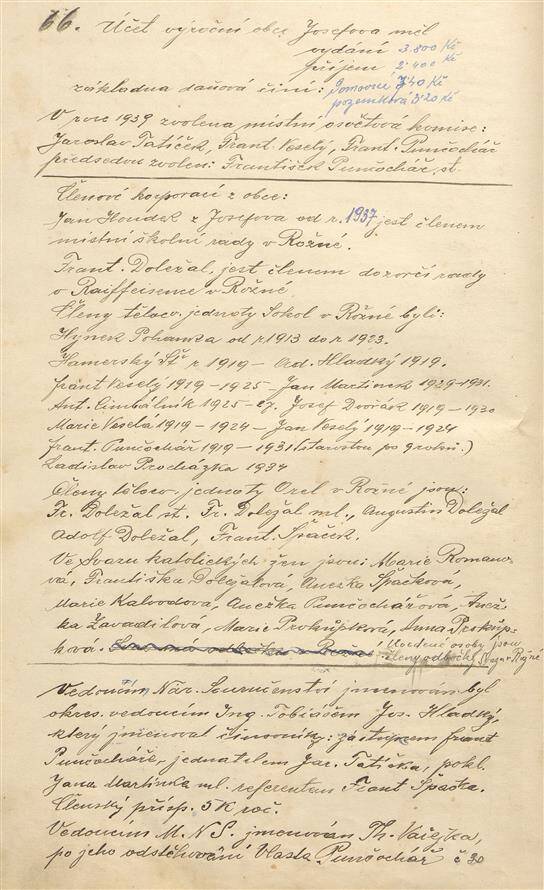 66. Účet výroční obce Josefova měl
vydání 3.800 Kč
příjem 2.400 Kč
základna daňová činí: Domovní 3.40 Kč
pozemková 3.20 Kč
V roce 1939 zvolena místní osočtová komise:
Jaroslav Tatíček, Frant. Veselý, Frant. Punčochář
předsedou zvolen: František Punčochář, st.
Členové korporací z obce:
Jan Houdek z Josefova od r. 1937 jest členem
místní školní rady v Rožné.
Frant. Doležal, jest členem dozorčí rady
o Raiffeisence v Rožné.
Členy těloc. jednoty Sokol v Rožné byli:
Hynek Pohanka od r. 1913 do r. 1923.
Hamerský Št. r. 1919 – Ad. Hladký 1919.
Frant. Veselý 1919–1925 – Jan Martinek 1929–1931.
Ant. Cimbálník 1925–27. Josef Dvořák 1919–1930
Marie Veselá 1919–1924 – Jan Veselý 1919–1924
Frant. Punčochář 1919–1931 (starostou po 9 roků.)
Ladislav Procházka 1934
Členy těloc. jednoty Orel v Rožné jsou:
Fr. Doležal st. Fr. Doležal ml., Augustin Doležal
Adolf Doležal, Frant. Špaček.
Ve Svazu katolických žen jsou: Marie Romano-
vá, Františka Doležalová, Anežka Špačková,
Marie Kalvodova, Anežka Punčochářová, Anež-
ka Zavadilová, Marie Prokůpková, Anna Prokůp-
ková. Uvedené osoby jsou
členy odbočky
Vedoucím Nár. Souručenství jmenován byl
okres. vedoucím Ing. Tobiášem Jos. Hladký,
který jmenoval činovníky: zástupcem Frant
Punčocháře, jednatelem Jar. Tatíčka, pokl.
Jana Martinka ml. referentem Frant Špačka.
Členský přísp. 5 K roč.
Vedoucím M.N.S. jmenován Th. Vařejka,
po jeho odstěhování Vlasta Punčochář č 30